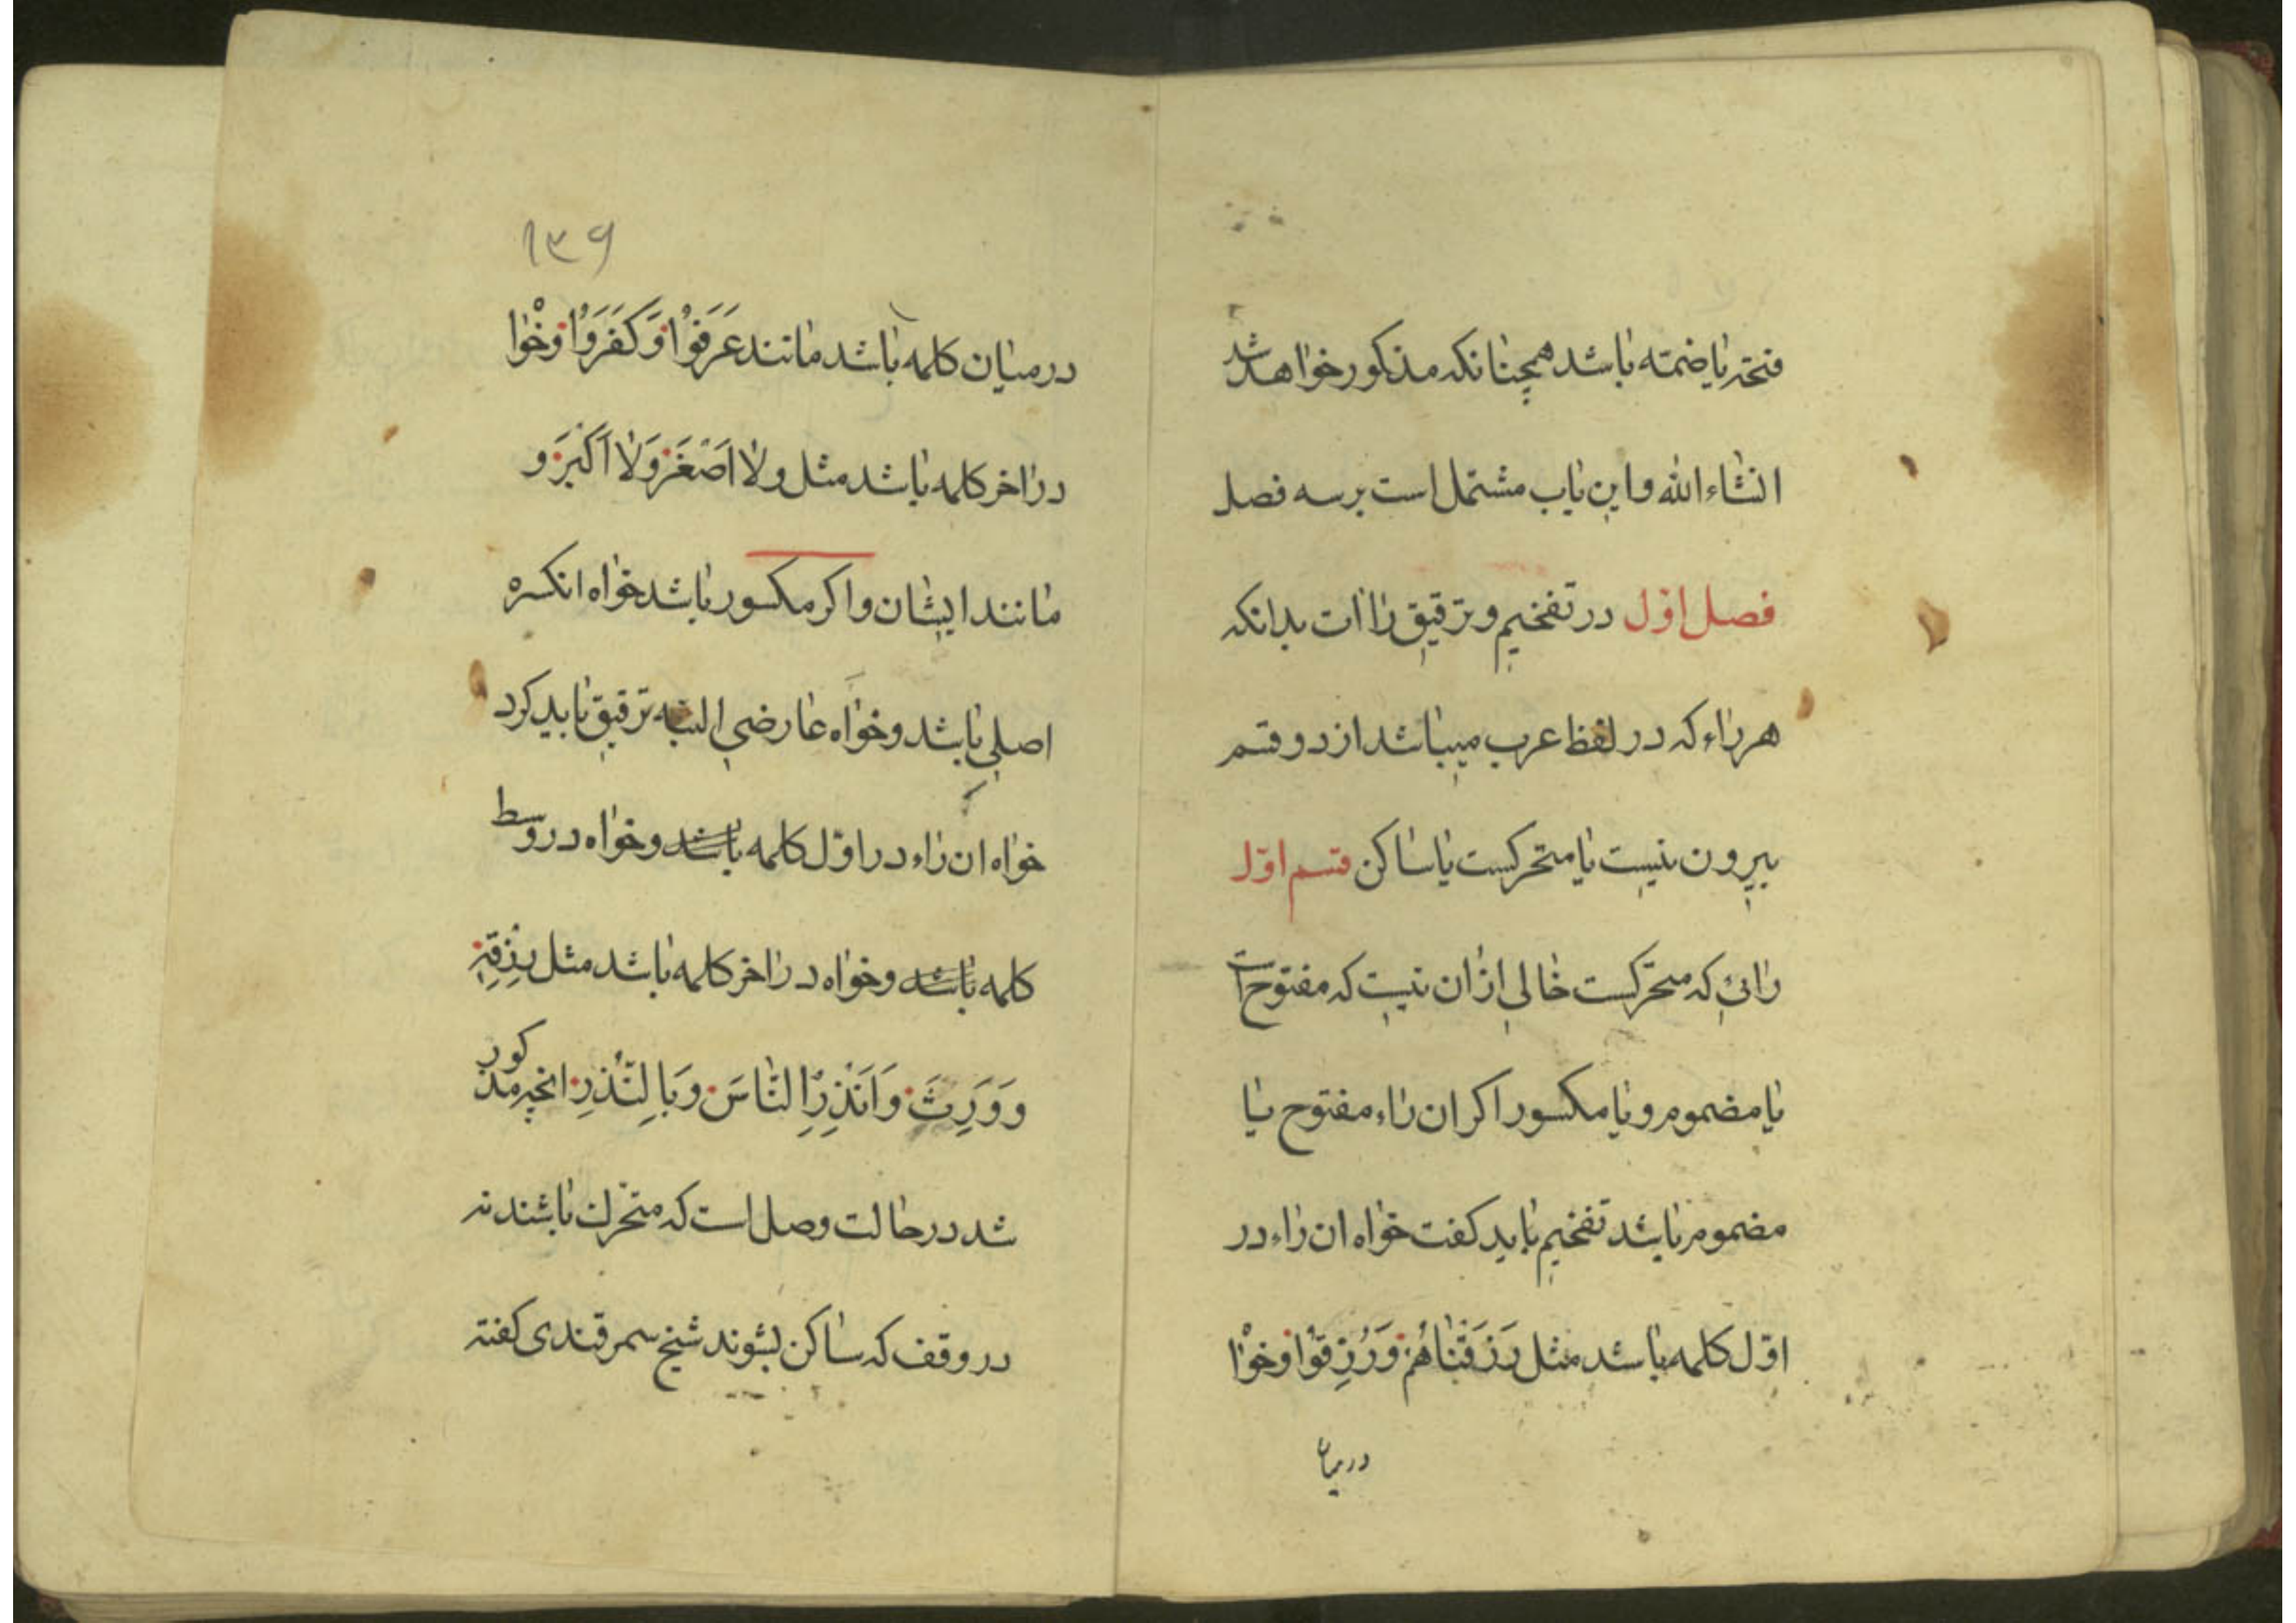 فتحه یا ضمّه باشد همچنانکه مذکور خواهد شد
انشاء الله و این باب مشتمل است بر سه فصل
فصل اوّل در تفخیم و ترقیق راات بدانکه
هر راء که در لفظ عرب میباشد از دو قسم
بیرون نیست یا متحرکست یا ساکن قسم اوّل
رائی که متحرّکست خالی ازان نیست که مفتوح است
یا مضموم و یا مکسور اکر ان راء مفتوح یا
مضموم باشد تفخیم باید کفت خواه ان راء در
اوّل کلمه باشد مثل رَزَقْنَاهُمْ وَرُزِقُوْا و خوٰا
درمیان
۱۳۹
در میان کلمه باشد مانند عَرَفُوْا وَکَفَرَوُا و خْوٰا
در اخر کلمه باشد مثل ولا اَصْغَرَ وَلا اَکْبَرَ و
مانند ایشان و اکر مکسور باشد خواه ان کسره
اصلی باشد و خواه عارضی البته ترقیق باید کرد
خواه ان راء در اوّل کلمه باشد و خواه در وسط
کلمه باشد و خواه در اخر کلمه باشد مثل رِزْقِهِ
و وَرِثَ وَاَنْذِرِ النَّاسَ وَبَالِنُّذُرِ انچه مذکور
شد در حالت وصل است که متحرّک باشند نه
در وقف که ساکن بشوند شیخ سمرقندی کفته